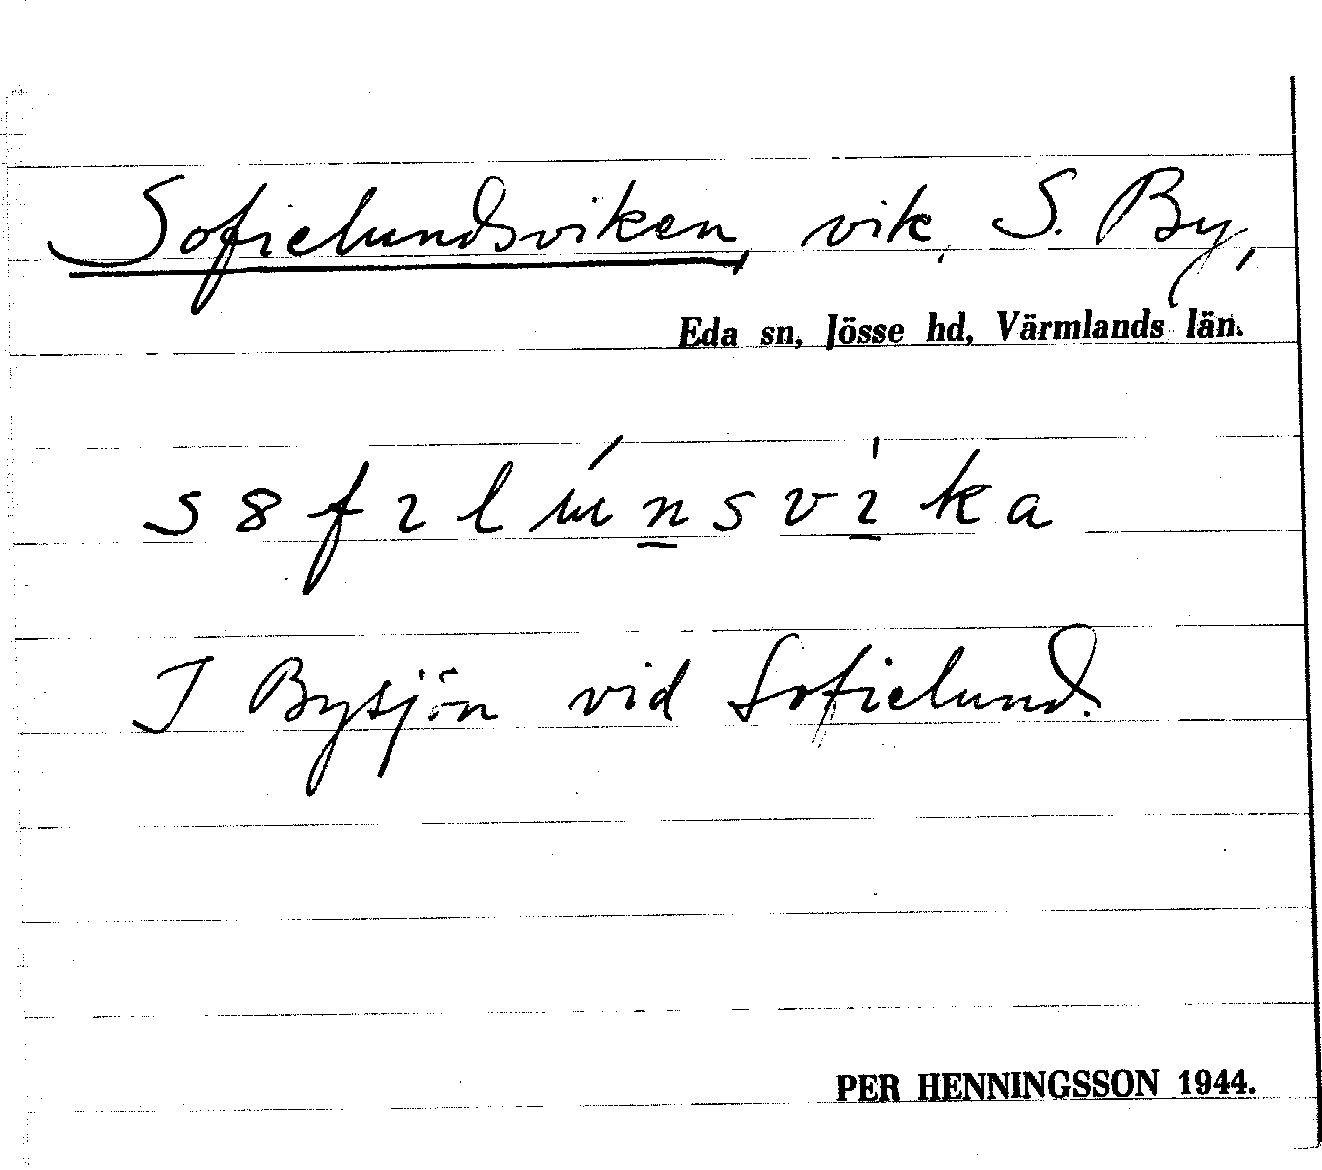 Sofielundsviken, vik, S. By,
Eda sn, Jösse hd, Värmlands län.
I Bysjön vid Sofielund.
PER HENNINGSSON 1944.